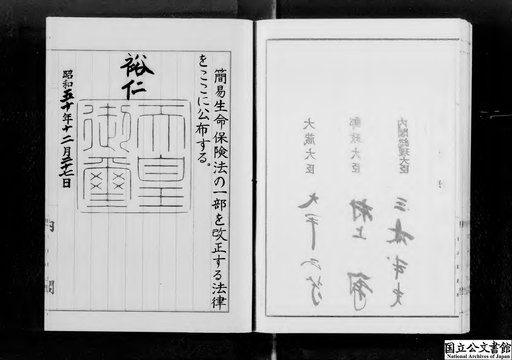 内閣総理大臣 三木武夫
郵政大臣 村上勇
大蔵大臣 大平正芳
簡易生命保険法の一部を改正する法律
をここに公布する。
裕仁
天皇
御璽
昭和五十年十二月二十七日
内閣
国立公文書館
National Archives of Japan